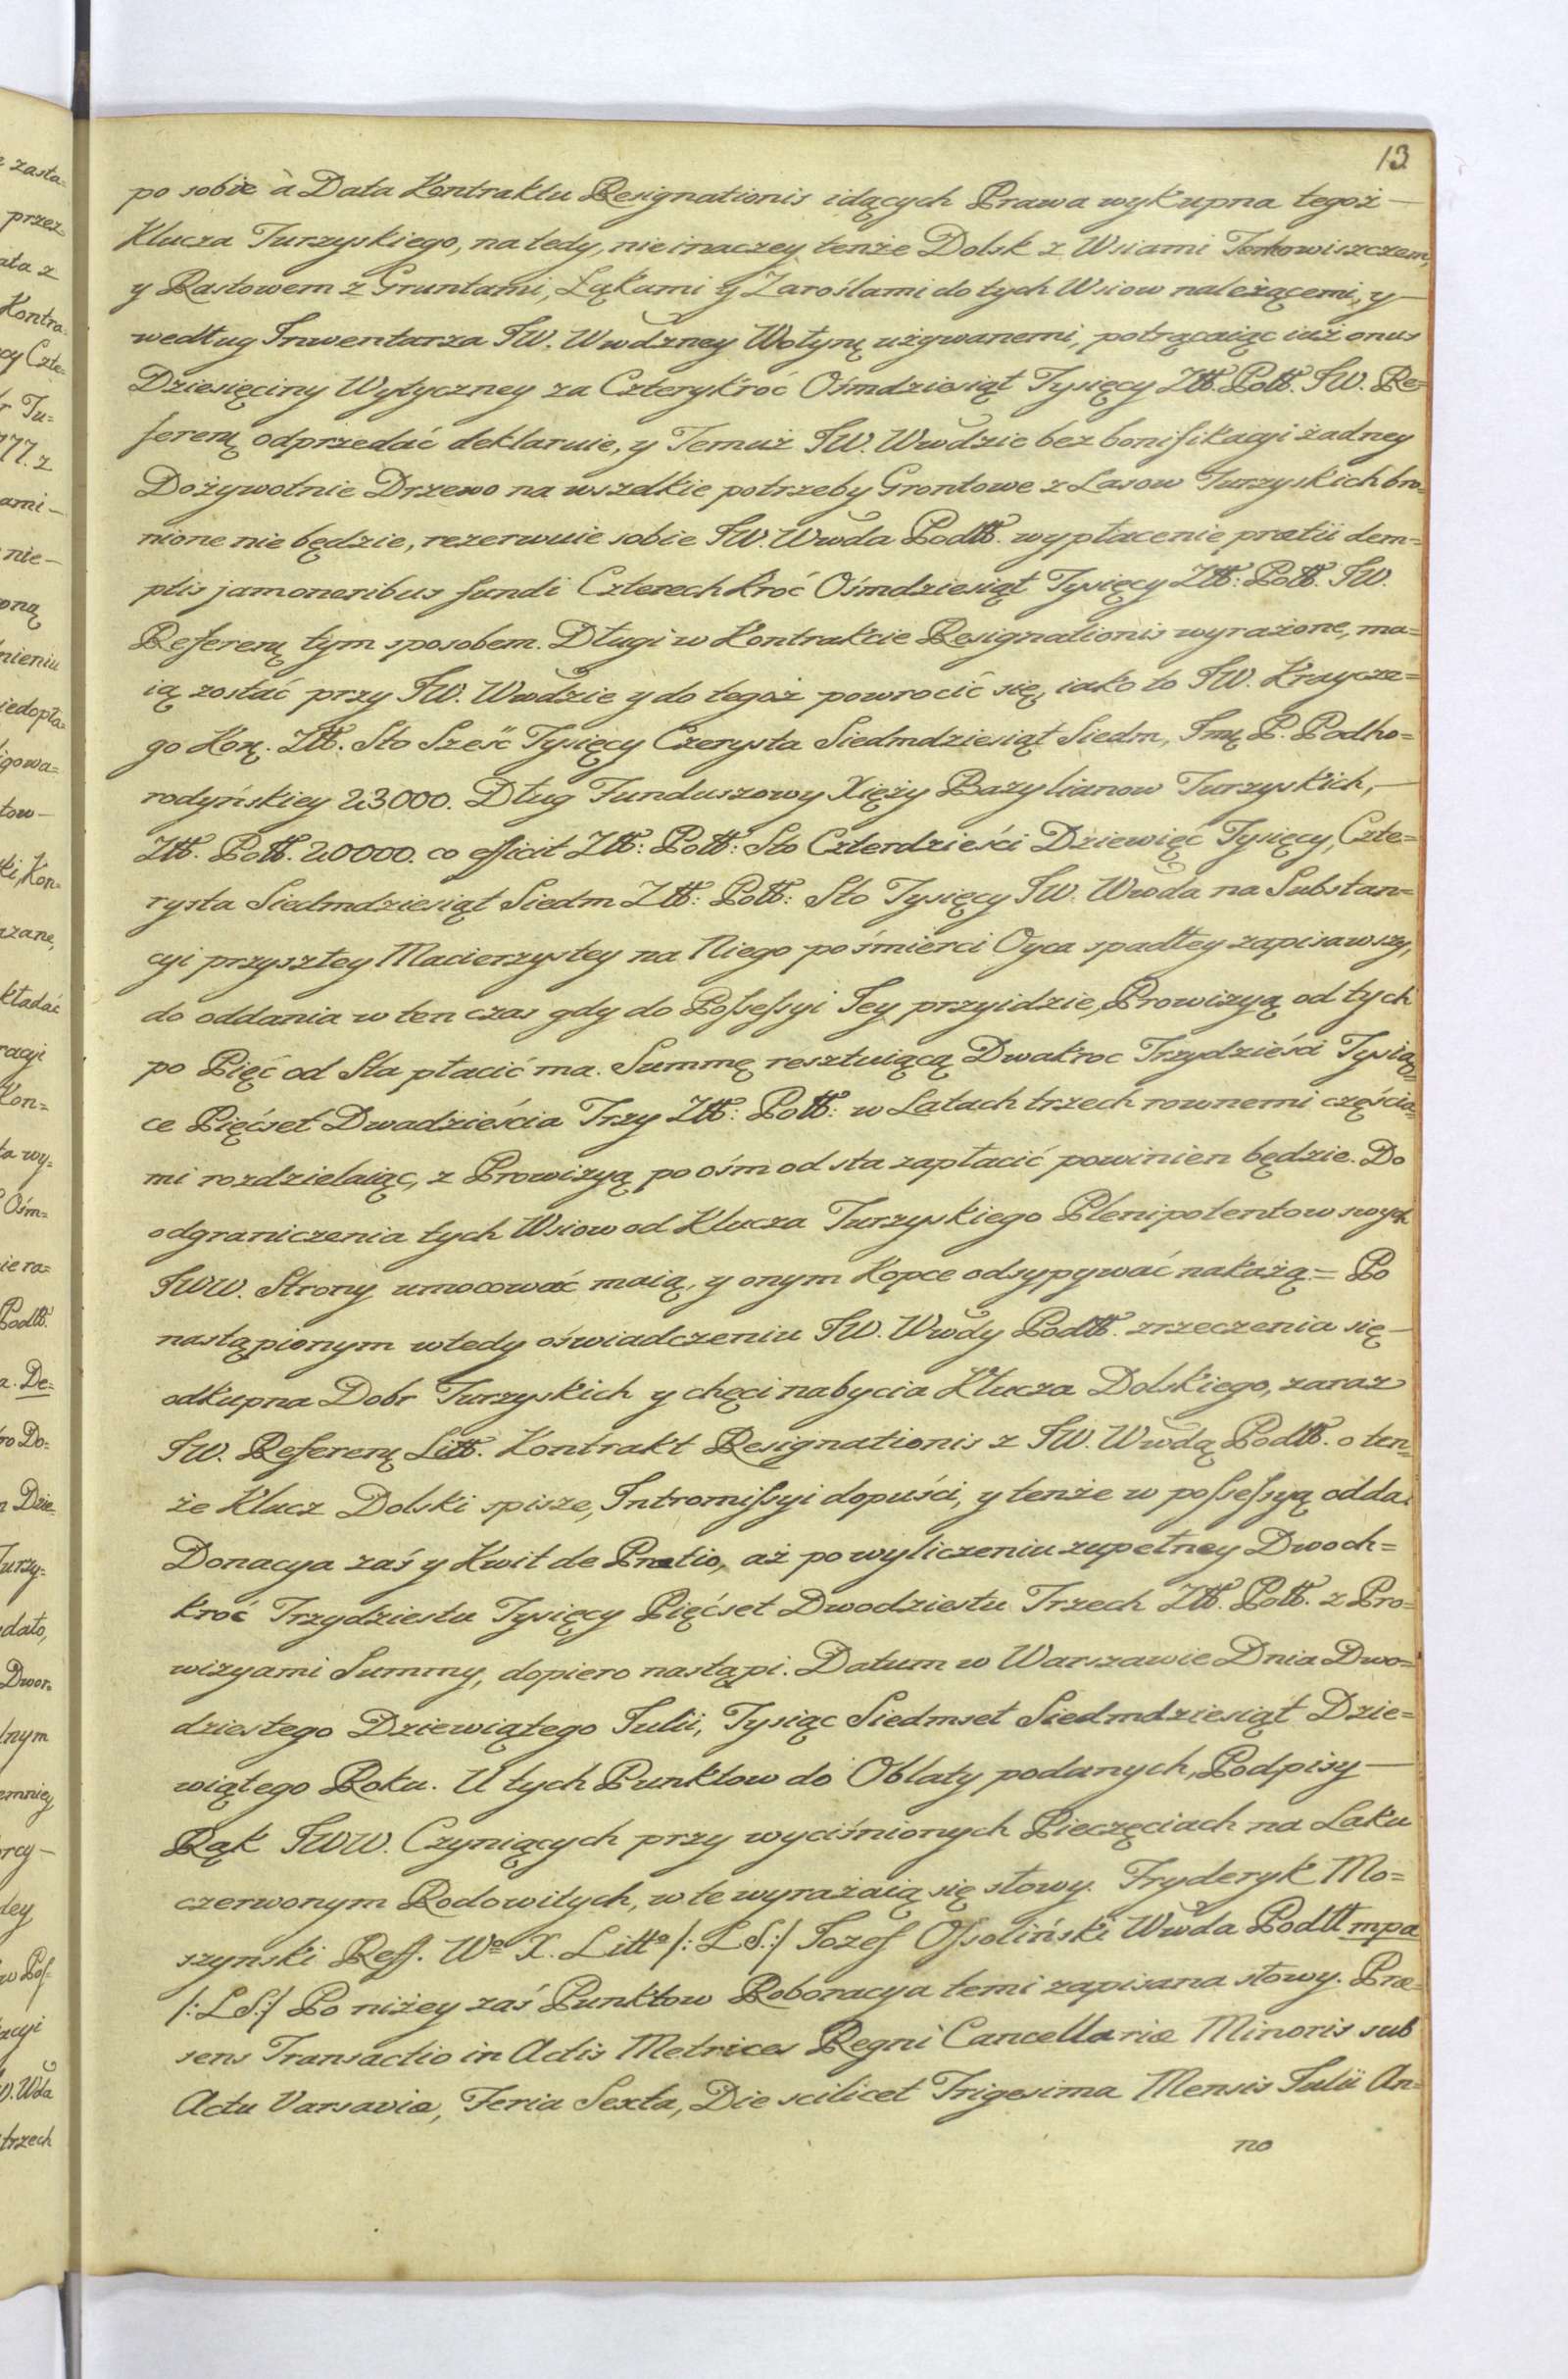 13
po sobie à Data Kontraktu Resignationis idących Prawa wykupna tegoż —
Klucza Turzyskiego, na tedy, nie inaczey tenże Dolsk z Wsiami
y Rastowem z Gruntami, Łąkami y Zaroślami do tych Wsiow należącemi, y —
według Inwentarza JW. Wwdzney Wołyń używanemi, potrącaiąc iuż onus
Dziesięciny Wytyczney za Czterykroć Ośmdziesiąt Tysięcy Złł. Poll. JW. Re=
ferenḍ odprzedać deklaruie, y Temuż JW. Wwdzie bez bonifikacyi żadney
Dożywotnie Drzewo na wszelkie potrzeby Grontowe z Lasow Turzyskich bro=
nione nie będzie, rezerwuie sobie JW. Wwda Podll. wypłacenie prætii dem=
ptis jam oneribus fundi Czterech kroć Ośmdziesiąt Tysięcy Złł: Poll. JW.
Referenḍ tym sposobem. Długi w Kontrakcie Resignationis wyrażone, ma=
ią zostać przy JW. Wwdzie y do tegoż powrocić się, iako to JW. Kraycze=
go Koṛ. Złł. Sto Sześć Tysięcy Czerysta Siedmdziesiąt Siedm, Jmę P. Podho=
rodyńskiey 23000. Dług Funduszowy Xięży Bazylianow Turzyskich, —
Złł. Poll. 20000. co efficit Złł: Poll: Sto Czterdzieści Dziewięć Tysięcy, Czte=
rysta Siedmdziesiąt Siedm Złł: Poll: Sto Tysięcy JW. Wwda na Substan=
cyi przyszłey Macierzystey na Niego po śmierci Oyca spadłey zapisawszy,
do oddania w ten czas gdy do Possessyi Jey przyidzie, Prowizyą od tych
po Pięć od Sta płacić ma. Summę resztuiącą Dwakroc Trzydzieści Tysią=
ce Pięćset Dwadzieścia Trzy Złł: Poll: w Latach trzech rownemi częścia=
mi rozdzielaiąc, z Prowizyą po ośm od sta zapłacić powinien będzie. Do
odgraniczenia tych Wsiow od Klucza Turzyskiego Plenipotentow swych
JWW. Strony umocować maią, y onym Kopce odsypywać nakażą = Po
nastąpionym wtedy oświadczeniu JW. Wwdy Podll. zrzeczenia się —
odkupna Dobr Turzyskich y chęci nabycia Klucza Dolskiego, zaraz
JW. Referenḍ Litt. Kontrakt Resignationis z JW. Wwdą Podll. o ten=
że Klucz Dolski spisze, Intromissyi dopuści, y tenże w possessyą odda.
Donacya zaś y Kwit de Prætio, aż po wyliczeniu zupełney Dwoch=
kroć Trzydziestu Tysięcy Pięćset Dwodziestu Trzech Złł. Poll. z Pro=
wizyami Summy, dopiero nastąpi. Datum w Warszawie Dnia Dwo=
dziestego Dziewiątego Julii, Tysiąc Siedmset Siedmdziesiąt Dzie=
wiątego Roku. U tych Punktow do Oblaty podanych, Podpisy —
Rąk JWW. Czyniących przy wyciśnionych Pieczęciach na Laku
czerwonym Rodowitych, w te wyrażaią się słowy. Fryderyk Mo=
szynski Reff. Wo X. Litto /: LS :/ Jozef Ossoliński Wwda Podll mpa
/: LS :/ Po niżey zaś Punktow Roboracya temi zapisana słowy. Præ=
sens Transactio in Actis Metrices Regni Cancellariæ Minoris sub
Actu Varsaviæ, Feria Sexta, Die scilicet Trigesima Mensis Julii An=
no